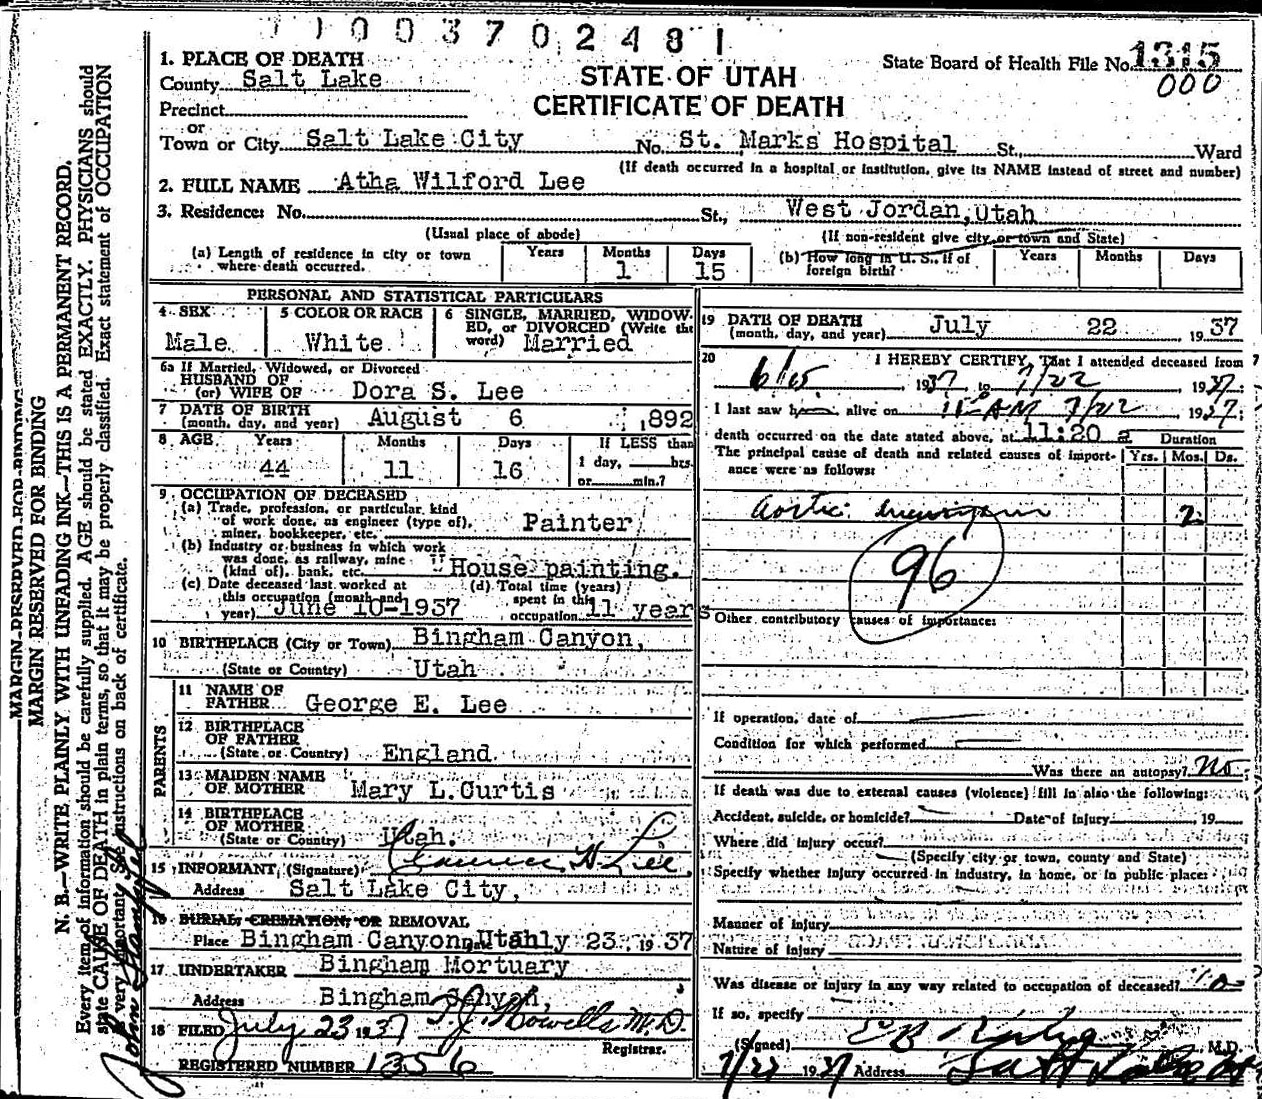 1 1 0 0 3 7 0 2 4 8 1
1. PLACE OF DEATH
County Salt Lake
Precinct
or
Town or City Salt Lake City No. St. Marks Hospital St., Ward
STATE OF UTAH
CERTIFICATE OF DEATH
State Board of Health File No. 1315
000
(If death occurred in a hospital or institution, give its NAME instead of street and number)
2. FULL NAME Atha Wilford Lee
3. Residence: No. St., West Jordan, Utah
(Usual place of abode) (If non-resident give city or town and State)
(a) Length of residence in city or town where death occurred. Years Months 1 Days 15
(b) How long in U. S., if of foreign birth? Years Months Days
PERSONAL AND STATISTICAL PARTICULARS
4 SEX Male
5 COLOR OR RACE White
6 SINGLE, MARRIED, WIDOWED, or DIVORCED (Write the word) Married
6a If Married, Widowed, or Divorced
HUSBAND OF
(or) WIFE OF Dora S. Lee
7 DATE OF BIRTH
(month, day, and year) August 6 , 1892
8 AGE Years Months Days If LESS than
44 11 16 1 day, hrs.
or min.?
9. OCCUPATION OF DECEASED
(a) Trade, profession, or particular kind
of work done, as engineer (type of),
miner, bookkeeper, etc. Painter
(b) Industry or business in which work
was done, as railway, mine
(kind of), bank, etc. House painting.
(c) Date deceased last worked at
this occupation (month and
year) June 10-1937
(d) Total time (years)
spent in this
occupation 11 years
10 BIRTHPLACE (City or Town) Bingham Canyon,
(State or Country) Utah
PARENTS
11 NAME OF
FATHER George E. Lee
12 BIRTHPLACE
OF FATHER
(State or Country) England
13 MAIDEN NAME
OF MOTHER Mary L. Curtis
14 BIRTHPLACE
OF MOTHER
(State or Country) Utah.
15 INFORMANT (Signature) Clarence H. Lee
Address Salt Lake City,
16 BURIAL, CREMATION, OR REMOVAL
Place Bingham Canyon, Utah 23, 1937
17 UNDERTAKER Bingham Mortuary
Address Bingham Canyon,
18 FILED July 23 1937 T. J. Howells M.D.
Registrar.
REGISTERED NUMBER 1356
19 DATE OF DEATH
(month, day, and year) July 22 1937
20 I HEREBY CERTIFY, That I attended deceased from
6/15 1937, to 7/22 1937.
I last saw h alive on 11 AM 7/22 1937;
death occurred on the date stated above, at 11:20 a
The principal cause of death and related causes of importance were as follows:
Duration
Yrs. Mos. Ds.
Aortic aneurysm 2
96
Other contributory causes of importance:
If operation, date of
Condition for which performed
Was there an autopsy? No
If death was due to external causes (violence) fill in also the following:
Accident, suicide, or homicide? Date of injury 19
Where did injury occur?
(Specify city or town, county and State)
Specify whether injury occurred in industry, in home, or in public place:
Manner of injury
Nature of injury
Was disease or injury in any way related to occupation of deceased? No
If so, specify
(Signed) M.D.
7/22 1937 Address Salt Lake
MARGIN RESERVED FOR BINDING
MARGIN RESERVED FOR BINDING
N. B.—WRITE PLAINLY WITH UNFADING INK—THIS IS A PERMANENT RECORD.
Every item of information should be carefully supplied. AGE should be stated EXACTLY. PHYSICIANS should
state CAUSE OF DEATH in plain terms, so that it may be properly classified. Exact statement of OCCUPATION
is very important. See instructions on back of certificate.